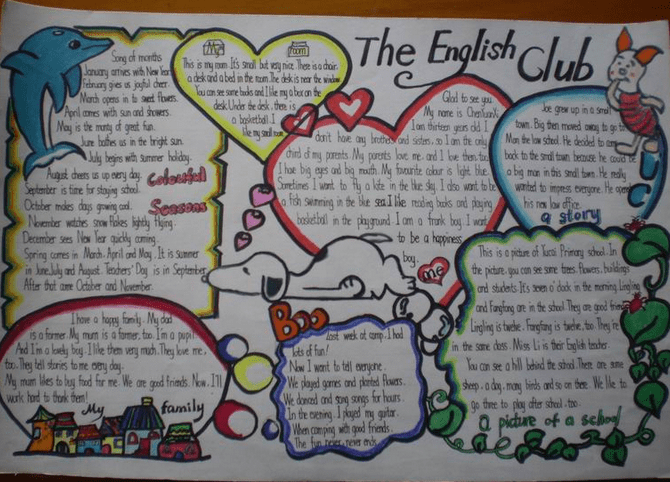 The English Club
Song of months
January arrives with New Year
February gives us joyful cheer.
March opens in to sweet flowers.
April comes with sun and showers.
May is the month of great fun.
June bathes us in the bright sun.
July begins with summer holiday.
August cheers us up every day.
September is time for staying school.
October makes days growing cool.
November watches snow flakes lightly flying.
December sees New Year quickly coming.
Spring comes in March. April and May. It is summer
in June, July and August. Teachers' Day is in September
After that come October and November.
Colourful
Seasons
My room
This is my room. It's small but very nice. There is a chair.
a desk and a bed in the room. The desk is near the window
You can see some books and I like my a box on the
desk. Under the desk, there is
a basketball. I
like my small room
Glad to see you.
My name is
I am thirteen years old. I
don't have any brothers and sisters, so I am the only
child of my parents. My parents love me, and I love them, too.
I have big eyes and big mouth. My favourite colour is light blue.
Sometimes I want to fly a kite in the blue sky. I also want to be
a fish swimming in the blue sea. I like reading books and playing
basketball in the playground. I am a frank boy. I want
to be a happiness
boy.
me
Joe grew up in a small
town. Big then moved away to go to
Man the law school. He decided to come
back to the small town because he could be
a big man in this small town. He really
wanted to impress everyone. He opened
his new law office.
a story
This is a picture of Yucai Primary school. In
the picture. you can see some trees. flowers. buildings
and students. It's seven o'clock in the morning. Lingling
and Fangfang are in the school. They are good friends
Lingling is twelve. Fangfang is twelve, too. They're
in the same class. Miss Li is their English teacher.
You can see a hill behind the school. There are some
sheep. a dog. many birds and so on there. We like to
go there to play after school. too.
a picture of a school
I have a happy family. My dad
is a farmer. My mum is a farmer, too. I'm a pupil
And I'm a lovely boy. I like them very much. They love me,
too. They tell stories to me every day.
My mum likes to buy food for me. We are good friends. Now. I'll
work hard to thank them!
My family
Boo
Last week at camp. I had
lots of fun!
Now I want to tell everyone.
We played games and planted flowers.
We danced and sang songs for hours.
In the evening. I played my guitar.
When camping with good friends.
The fun never never ends.